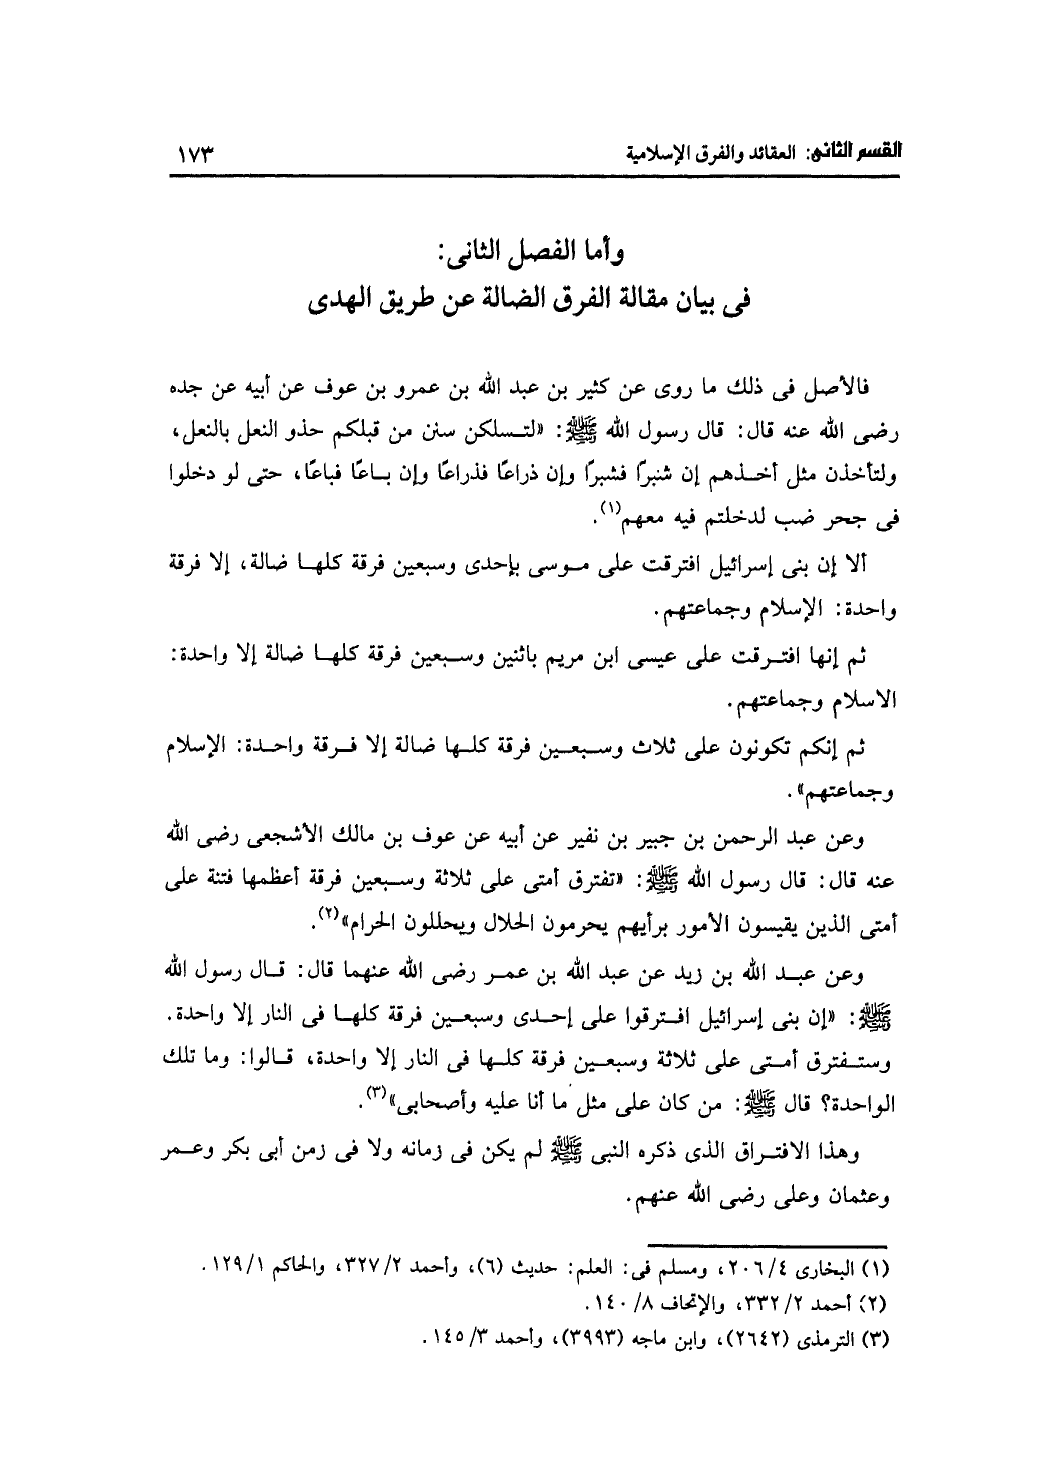 القسم الثانى: العقائد والفرق الإسلامية ١٧٣
وأما الفصل الثانى:
فى بيان مقالة الفرق الضالة عن طريق الهدى
فالأصل فى ذلك ما روى عن كثير بن عبد الله بن عمرو بن عوف عن أبيه عن جده
رضى الله عنه قال: قال رسول الله ﷺ: «لتسلكن سنن من قبلكم حذو النعل بالنعل،
ولتأخذن مثل أخذهم إن شبرًا فشبرًا وإن ذراعًا فذراعًا وإن باعًا فباعًا، حتى لو دخلوا
فى جحر ضب لدخلتم فيه معهم(١).
ألا إن بنى إسرائيل افترقت على موسى بإحدى وسبعين فرقة كلها ضالة، إلا فرقة
واحدة: الإسلام وجماعتهم.
ثم إنها افترقت على عيسى ابن مريم باثنين وسبعين فرقة كلها ضالة إلا واحدة:
الاسلام وجماعتهم.
ثم إنكم تكونون على ثلاث وسبعين فرقة كلها ضالة إلا فرقة واحدة: الإسلام
وجماعتهم».
وعن عبد الرحمن بن جبير بن نفير عن أبيه عن عوف بن مالك الأشجعى رضى الله
عنه قال: قال رسول الله ﷺ: «تفترق أمتى على ثلاثة وسبعين فرقة أعظمها فتنة على
أمتى الذين يقيسون الأمور برأيهم يحرمون الحلال ويحللون الحرام»(٢).
وعن عبد الله بن زيد عن عبد الله بن عمر رضى الله عنهما قال: قال رسول الله
ﷺ: «إن بنى إسرائيل افترقوا على إحدى وسبعين فرقة كلها فى النار إلا واحدة.
وستفترق أمتى على ثلاثة وسبعين فرقة كلها فى النار إلا واحدة، قالوا: وما تلك
الواحدة؟ قال ﷺ: من كان على مثل ما أنا عليه وأصحابى»(٣).
وهذا الافتراق الذى ذكره النبى ﷺ لم يكن فى زمانه ولا فى زمن أبى بكر وعمر
وعثمان وعلى رضى الله عنهم.
(١) البخارى ٢٠٦/٤، ومسلم فى: العلم: حديث (٦)، وأحمد ٣٢٧/٢، والحاكم ١٢٩/١.
(٢) أحمد ٣٣٢/٢، والإتحاف ١٤٠/٨.
(٣) الترمذى (٢٦٤٢)، وابن ماجه (٣٩٩٣)، وأحمد ١٤٥/٣.